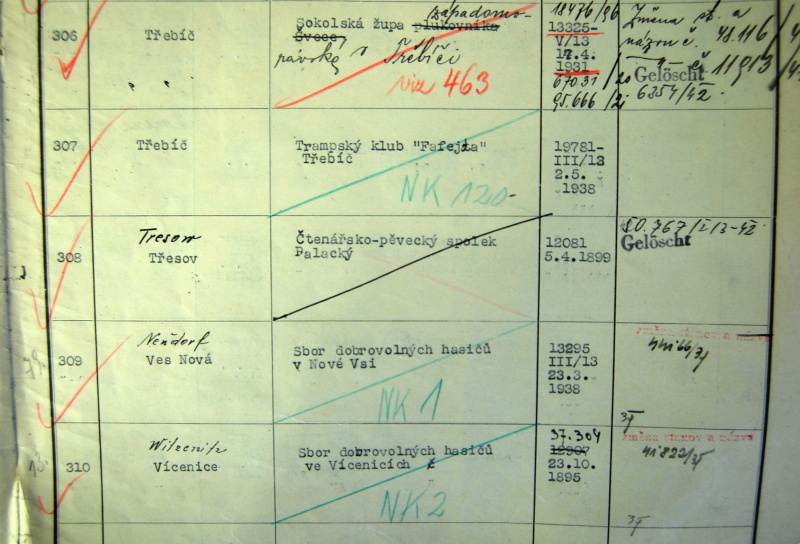 306
Třebíč
západomo-
Sokolská župa plukovníka
Švece,
v Třebíči
viz 463
13325-
V/13
14.4.
1931
67031/20
95.666/21
Změna st. a
názvu č. 48.116/4
Gelöscht
6354/42.
307
Třebíč
Trampský klub "Fafejta"
Třebíč
NK 120
19781-
III/13
2.5.
1938
308
Tresow
Třesov
Čtenářsko-pěvecký spolek
Palacký
12081
5.4.1899
50.767/I/3-42
Gelöscht
309
Neudorf
Ves Nová
Sbor dobrovolných hasičů
v Nové Vsi
NK 1
13295
III/13
23.3.
1938
změna stanov a názvu
310
Witzenitz
Vícenice
Sbor dobrovolných hasičů
ve Vícenicích č
NK 2
37.304
12907
23.10.
1895
změna stanov a názvu
41822/35